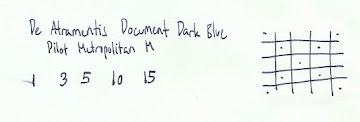 De Atramentis Document Dark Blue
Pilot Metropolitan M
1 3 5 10 15